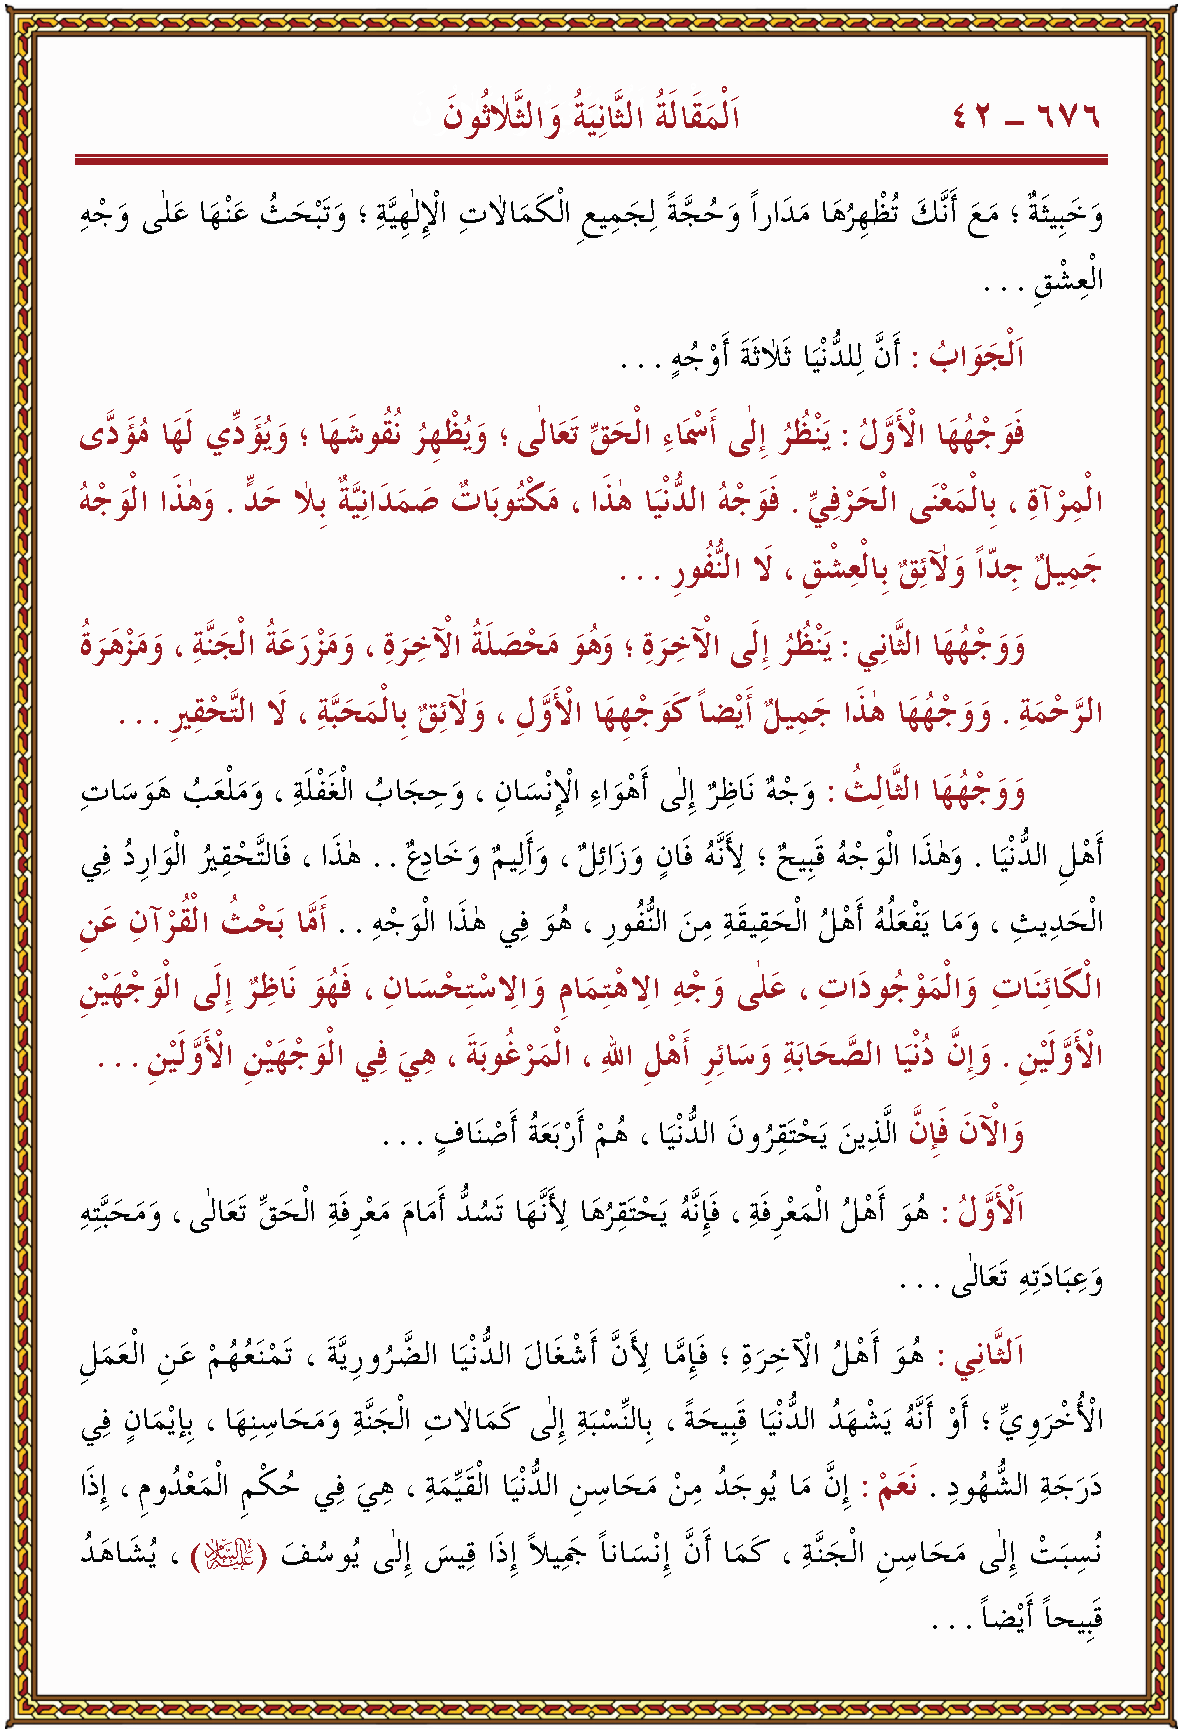 ٦٧٦ – ٤٢ اَلْمَقَالَةُ الثَّانِيَةُ وَالثَّلاٰثُونَ
وَخَبِيثَةٌ ؛ مَعَ أَنَّكَ تُظْهِرُهَا مَدَاراً وَحُجَّةً لِجَمِيعِ الْكَمَالاٰتِ الْإِلٰهِيَّةِ ؛ وَتَبْحَثُ عَنْهَا عَلٰى وَجْهِ
الْعِشْقِ . . .
اَلْجَوَابُ : أَنَّ لِلدُّنْيَا ثَلاٰثَةَ أَوْجُهٍ . . .
فَوَجْهُهَا الْأَوَّلُ : يَنْظُرُ إِلٰى أَسْمَاءِ الْحَقِّ تَعَالٰى ؛ وَيُظْهِرُ نُقُوشَهَا ؛ وَيُؤَدِّي لَهَا مُؤَدَّى
الْمِرْآةِ ، بِالْمَعْنَى الْحَرْفِيِّ . فَوَجْهُ الدُّنْيَا هٰذَا ، مَكْتُوبَاتٌ صَمَدَانِيَّةٌ بِلاٰ حَدٍّ . وَهٰذَا الْوَجْهُ
جَمِيلٌ جِدّاً وَلٰآئِقٌ بِالْعِشْقِ ، لَا النُّفُورِ . . .
وَوَجْهُهَا الثَّانِي : يَنْظُرُ إِلَى الْآخِرَةِ ؛ وَهُوَ مَحْصَلَةُ الْآخِرَةِ ، وَمَزْرَعَةُ الْجَنَّةِ ، وَمَزْهَرَةُ
الرَّحْمَةِ . وَوَجْهُهَا هٰذَا جَمِيلٌ أَيْضاً كَوَجْهِهَا الْأَوَّلِ ، وَلٰآئِقٌ بِالْمَحَبَّةِ ، لَا التَّحْقِيرِ . . .
وَوَجْهُهَا الثَّالِثُ : وَجْهٌ نَاظِرٌ إِلٰى أَهْوَاءِ الْإِنْسَانِ ، وَحِجَابُ الْغَفْلَةِ ، وَمَلْعَبُ هَوَسَاتِ
أَهْلِ الدُّنْيَا . وَهٰذَا الْوَجْهُ قَبِيحٌ ؛ لِأَنَّهُ فَانٍ وَزَائِلٌ ، وَأَلِيمٌ وَخَادِعٌ . . هٰذَا ، فَالتَّحْقِيرُ الْوَارِدُ فِي
الْحَدِيثِ ، وَمَا يَفْعَلُهُ أَهْلُ الْحَقِيقَةِ مِنَ النُّفُورِ ، هُوَ فِي هٰذَا الْوَجْهِ . . أَمَّا بَحْثُ الْقُرْآنِ عَنِ
الْكَائِنَاتِ وَالْمَوْجُودَاتِ ، عَلٰى وَجْهِ الاِهْتِمَامِ وَالاِسْتِحْسَانِ ، فَهُوَ نَاظِرٌ إِلَى الْوَجْهَيْنِ
الْأَوَّلَيْنِ . وَإِنَّ دُنْيَا الصَّحَابَةِ وَسَائِرِ أَهْلِ اللهِ ، الْمَرْغُوبَةَ ، هِيَ فِي الْوَجْهَيْنِ الْأَوَّلَيْنِ . . .
وَالْآنَ فَإِنَّ الَّذِينَ يَحْتَقِرُونَ الدُّنْيَا ، هُمْ أَرْبَعَةُ أَصْنَافٍ . . .
اَلْأَوَّلُ : هُوَ أَهْلُ الْمَعْرِفَةِ ، فَإِنَّهُ يَحْتَقِرُهَا لِأَنَّهَا تَسُدُّ أَمَامَ مَعْرِفَةِ الْحَقِّ تَعَالٰى ، وَمَحَبَّتِهِ
وَعِبَادَتِهِ تَعَالٰى . . .
اَلثَّانِي : هُوَ أَهْلُ الْآخِرَةِ ؛ فَإِمَّا لِأَنَّ أَشْغَالَ الدُّنْيَا الضَّرُورِيَّةَ ، تَمْنَعُهُمْ عَنِ الْعَمَلِ
الْأُخْرَوِيِّ ؛ أَوْ أَنَّهُ يَشْهَدُ الدُّنْيَا قَبِيحَةً ، بِالنِّسْبَةِ إِلٰى كَمَالاٰتِ الْجَنَّةِ وَمَحَاسِنِهَا ، بِإِيْمَانٍ فِي
دَرَجَةِ الشُّهُودِ . نَعَمْ : إِنَّ مَا يُوجَدُ مِنْ مَحَاسِنِ الدُّنْيَا الْقَيِّمَةِ ، هِيَ فِي حُكْمِ الْمَعْدُومِ ، إِذَا
نُسِبَتْ إِلٰى مَحَاسِنِ الْجَنَّةِ ، كَمَا أَنَّ إِنْسَاناً جَمِيلاً إِذَا قِيسَ إِلٰى يُوسُفَ (عليه السلام) ، يُشَاهَدُ
قَبِيحاً أَيْضاً . . .